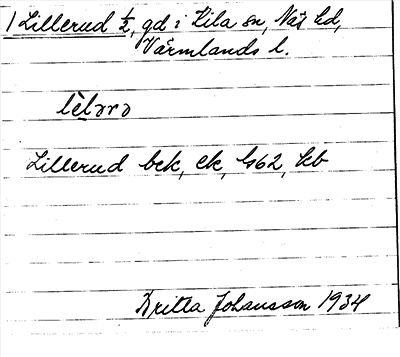 1 Lillerud ½, gd i Kila sn, Näs hd,
Värmlands l.
lèlərə
Lillerud bck, ek, G62, hb
Britta Johansson 1934